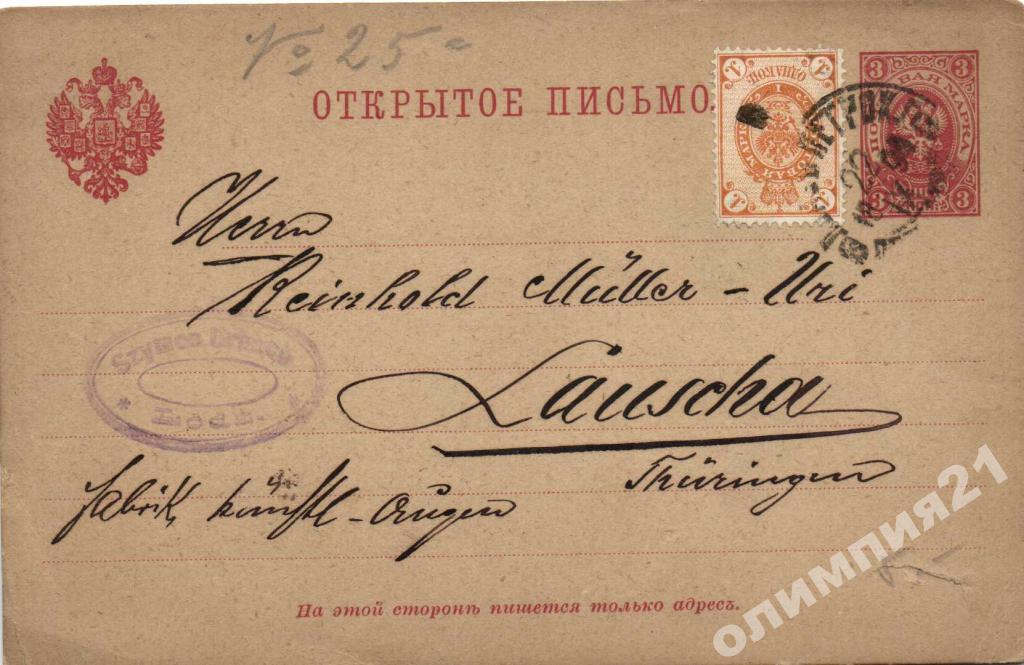 № 25
ОТКРЫТОЕ ПИСЬМО.
3 ПОЧТОВАЯ МАРКА 3
3 3
1 1
1 1
ПЕТРОК. Г.
22
Herrn
Reinhold Müller-Uri
Lauscha
Thüringen
Szymon
Fabrik künstl-Augen
На этой сторонѣ пишется только адресъ.
олимпия21